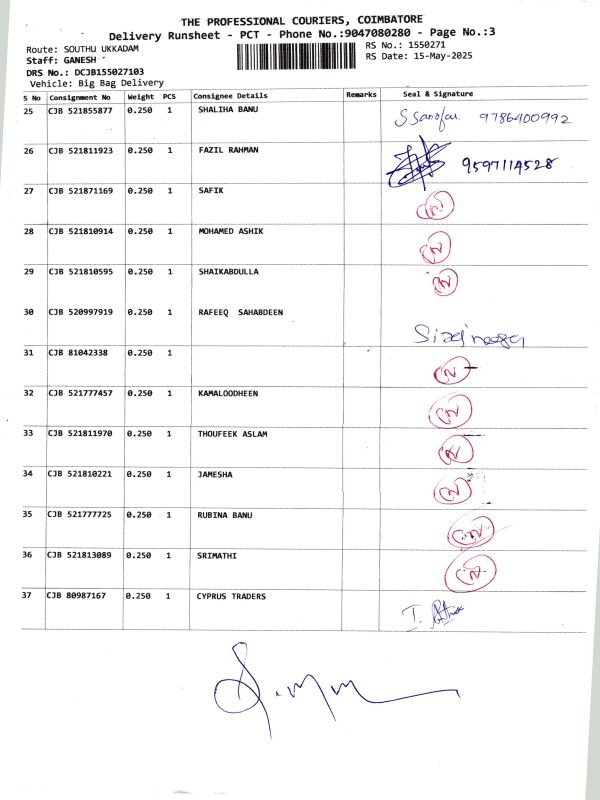 THE PROFESSIONAL COURIERS, COIMBATORE
Delivery Runsheet - PCT - Phone No.:9047080280 - Page No.:3
Route: SOUTHU UKKADAM
RS No.: 1550271
Staff: GANESH
RS Date: 15-May-2025
DRS No.: DCJB155027103
Vehicle: Big Bag Delivery
S No Consignment No Weight PCS Consignee Details Remarks Seal & Signature
25 CJB 521855877 0.250 1 SHALIHA BANU 9786400992
26 CJB 521811923 0.250 1 FAZIL RAHMAN 9597114528
27 CJB 521871169 0.250 1 SAFIK
28 CJB 521810914 0.250 1 MOHAMED ASHIK
29 CJB 521810595 0.250 1 SHAIKABDULLA
30 CJB 520997919 0.250 1 RAFEEQ SAHABDEEN
31 CJB 81042338 0.250 1
32 CJB 521777457 0.250 1 KAMALOODHEEN
33 CJB 521811970 0.250 1 THOUFEEK ASLAM
34 CJB 521810221 0.250 1 JAMESHA
35 CJB 521777725 0.250 1 RUBINA BANU
36 CJB 521813089 0.250 1 SRIMATHI
37 CJB 80987167 0.250 1 CYPRUS TRADERS